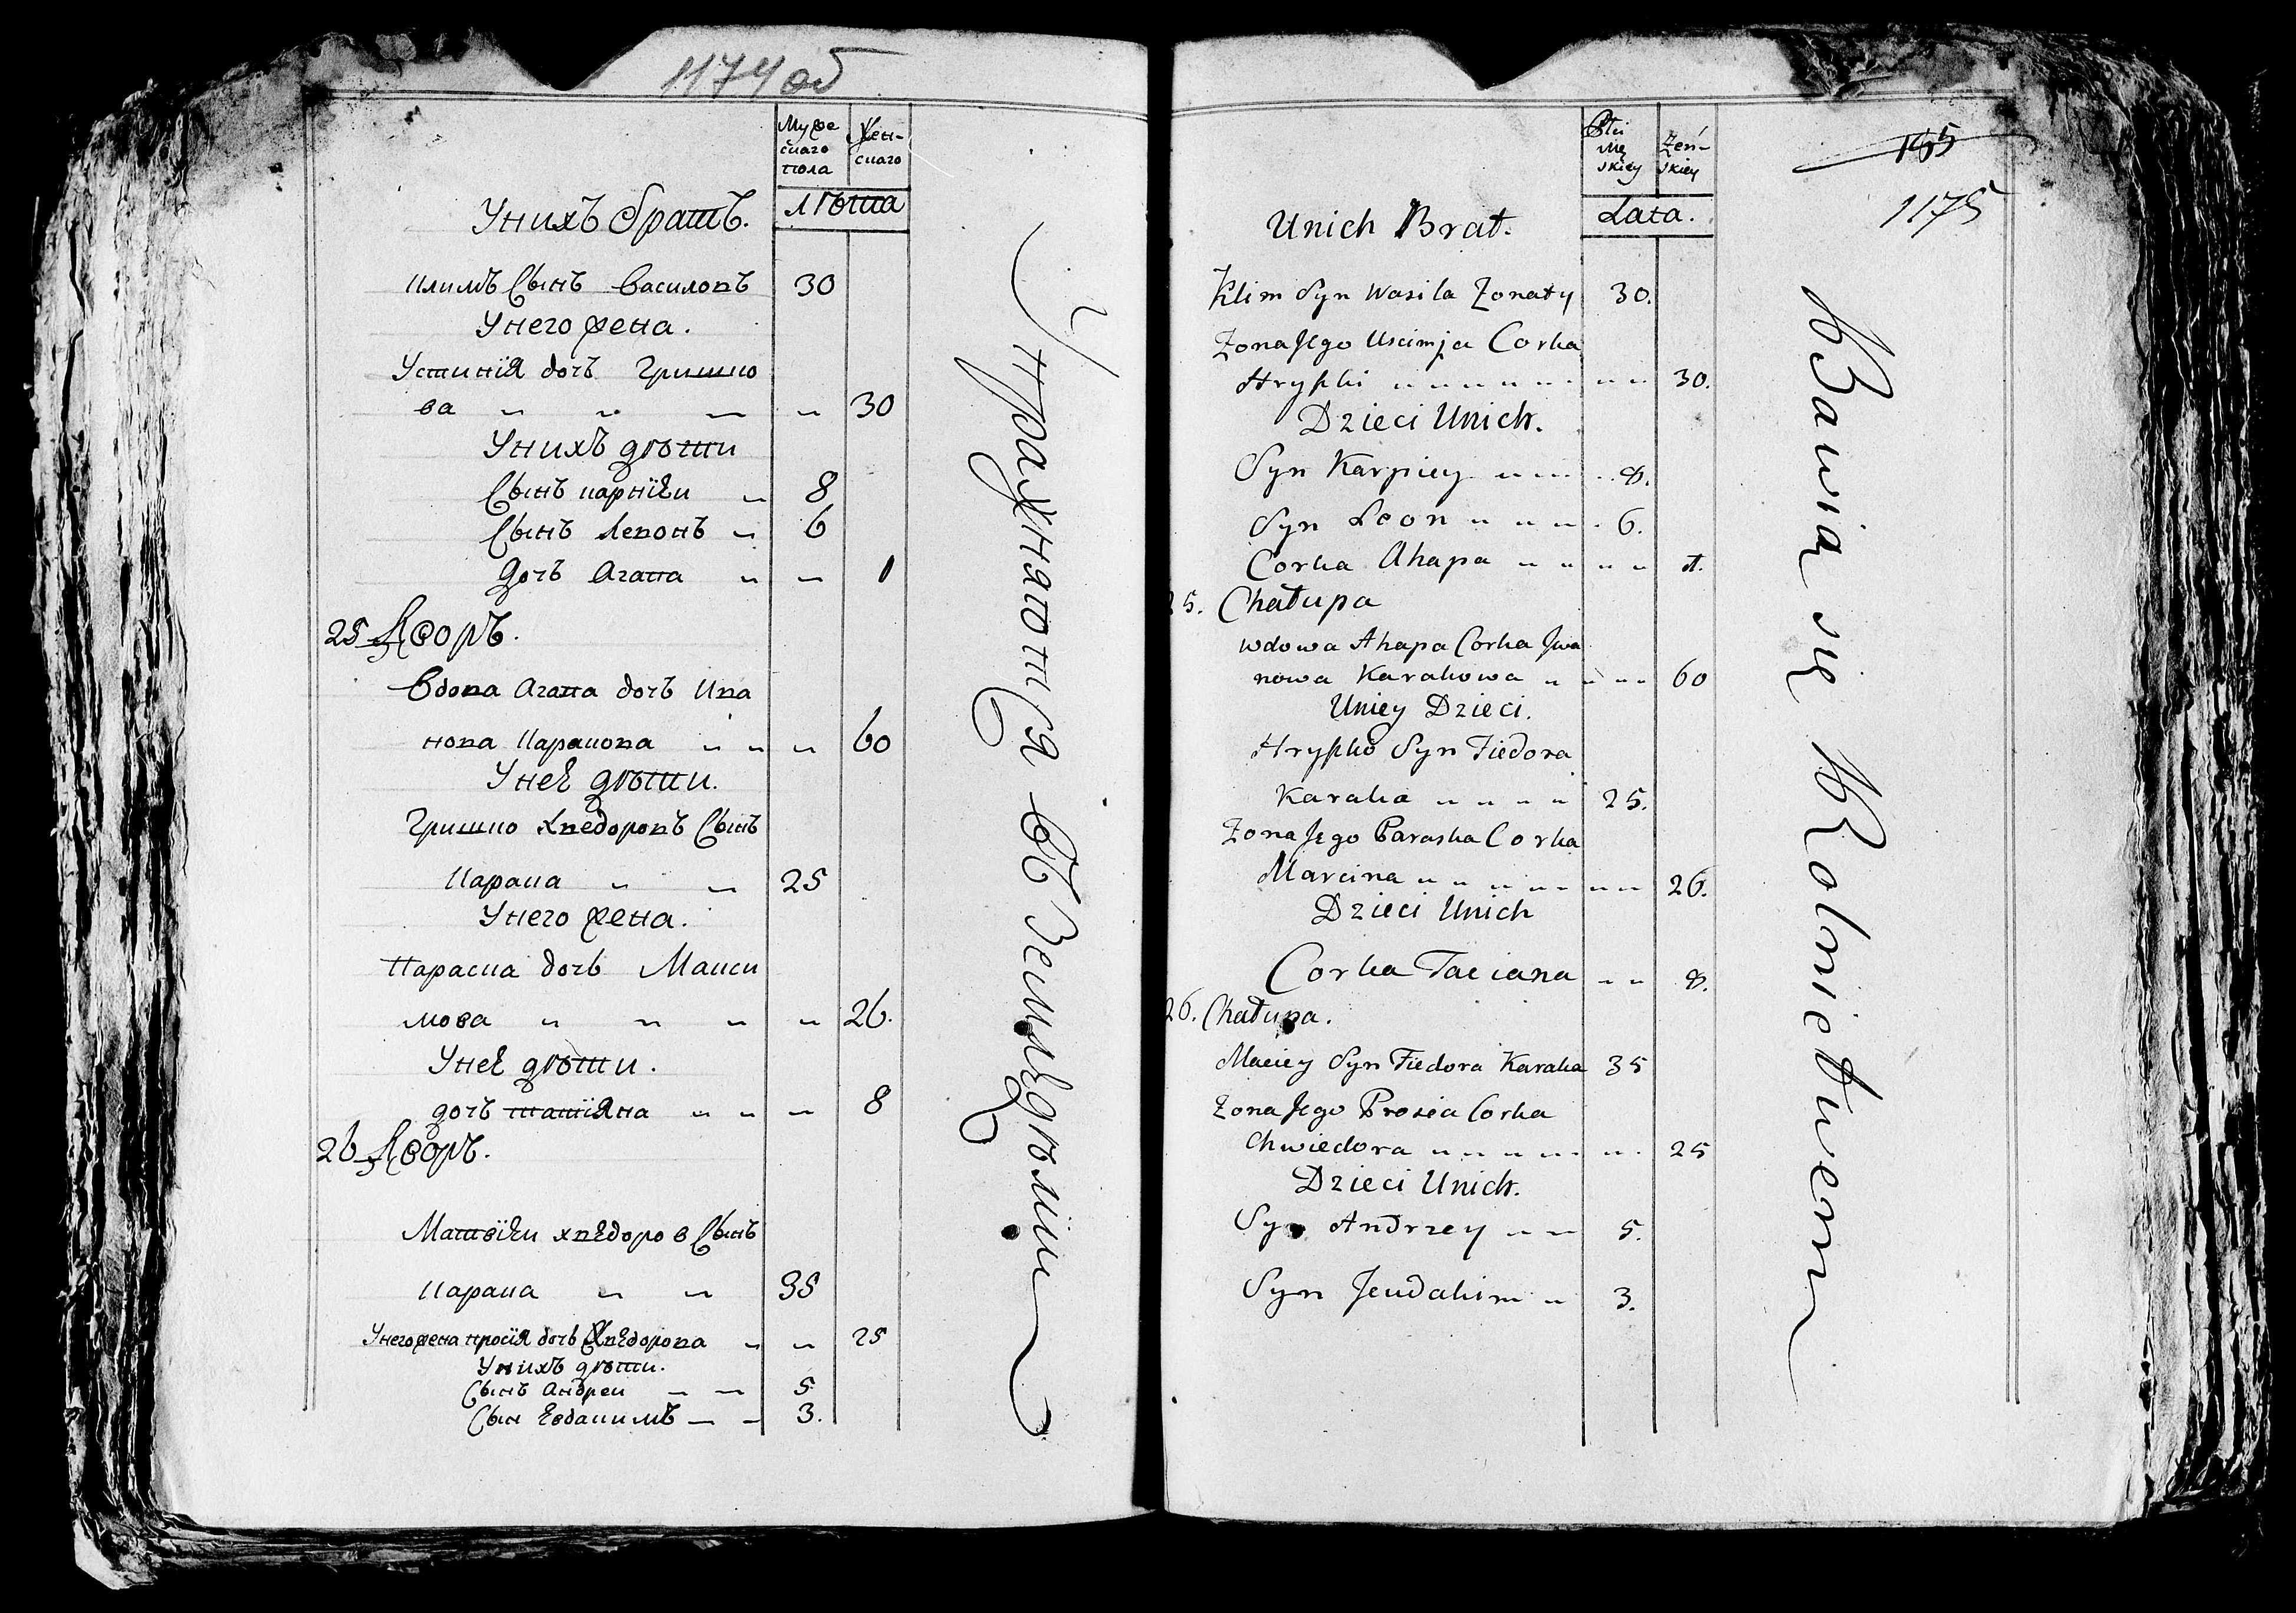 1174 об
Мужескаго пола
Женскаго
лѣта
Унихъ братъ.
Климъ Сынъ Василовъ 30
Унего жена.
Устинія дочъ Гришко
ва " " " " 30
Унихъ дѣти
Сынъ карпіеи " 8
Сынъ Левонъ " 6
Дочъ Агапа " " 1
25 Дворъ.
Вдова Агапа дочъ Ива
нова Каракова " " " 60
Унеѣ дѣти.
Гришко Хведоровъ Сынъ
Карака " " 25
Унего жена.
Параска дочъ Макси
мова " " " " 26.
Унеѣ дѣти.
дочъ татіяна " " " 8
26 Дворъ.
Матвіеи хведоров Сынъ
Карака " " 35
Унего жена просія дочъ Хведорова " " 25
Унихъ дѣти.
Сынъ Андреи " " 5
Сын Евдакимъ " " 3.
Упражняютися въ Земледѣліи
Płci Męskiey
Żeńskiey
Lata.
155
1175
Unich Brat.
Klim Syn Wasila Zonaty 30.
Zona Jego Uscimja Corka
Hryszki " " " " " " " " 30.
Dzieci Unich.
Syn Karpiey " " " 8.
Syn Leon " " " 6.
Corka Ahapa " " " " 1.
25. Chałupa
wdowa Ahapa Corka Jwa
nowa Karakowa " " " " 60
Uniey Dzieci.
Hryszko Syn Fiedora
Karaka " " " " 25.
Zona Jego Paraska Corka
Marcina " " " " " " " 26.
Dzieci Unich
Corka Taciana " " 8.
26. Chałupa.
Maciey Syn Fiedora Karaka 35
Zona Jego Prosia Corka
Chwiedora " " " " " " " 25
Dzieci Unich.
Syn Andrzey " " 5.
Syn Jeudakim " 3.
Bawią się Rolnictwem